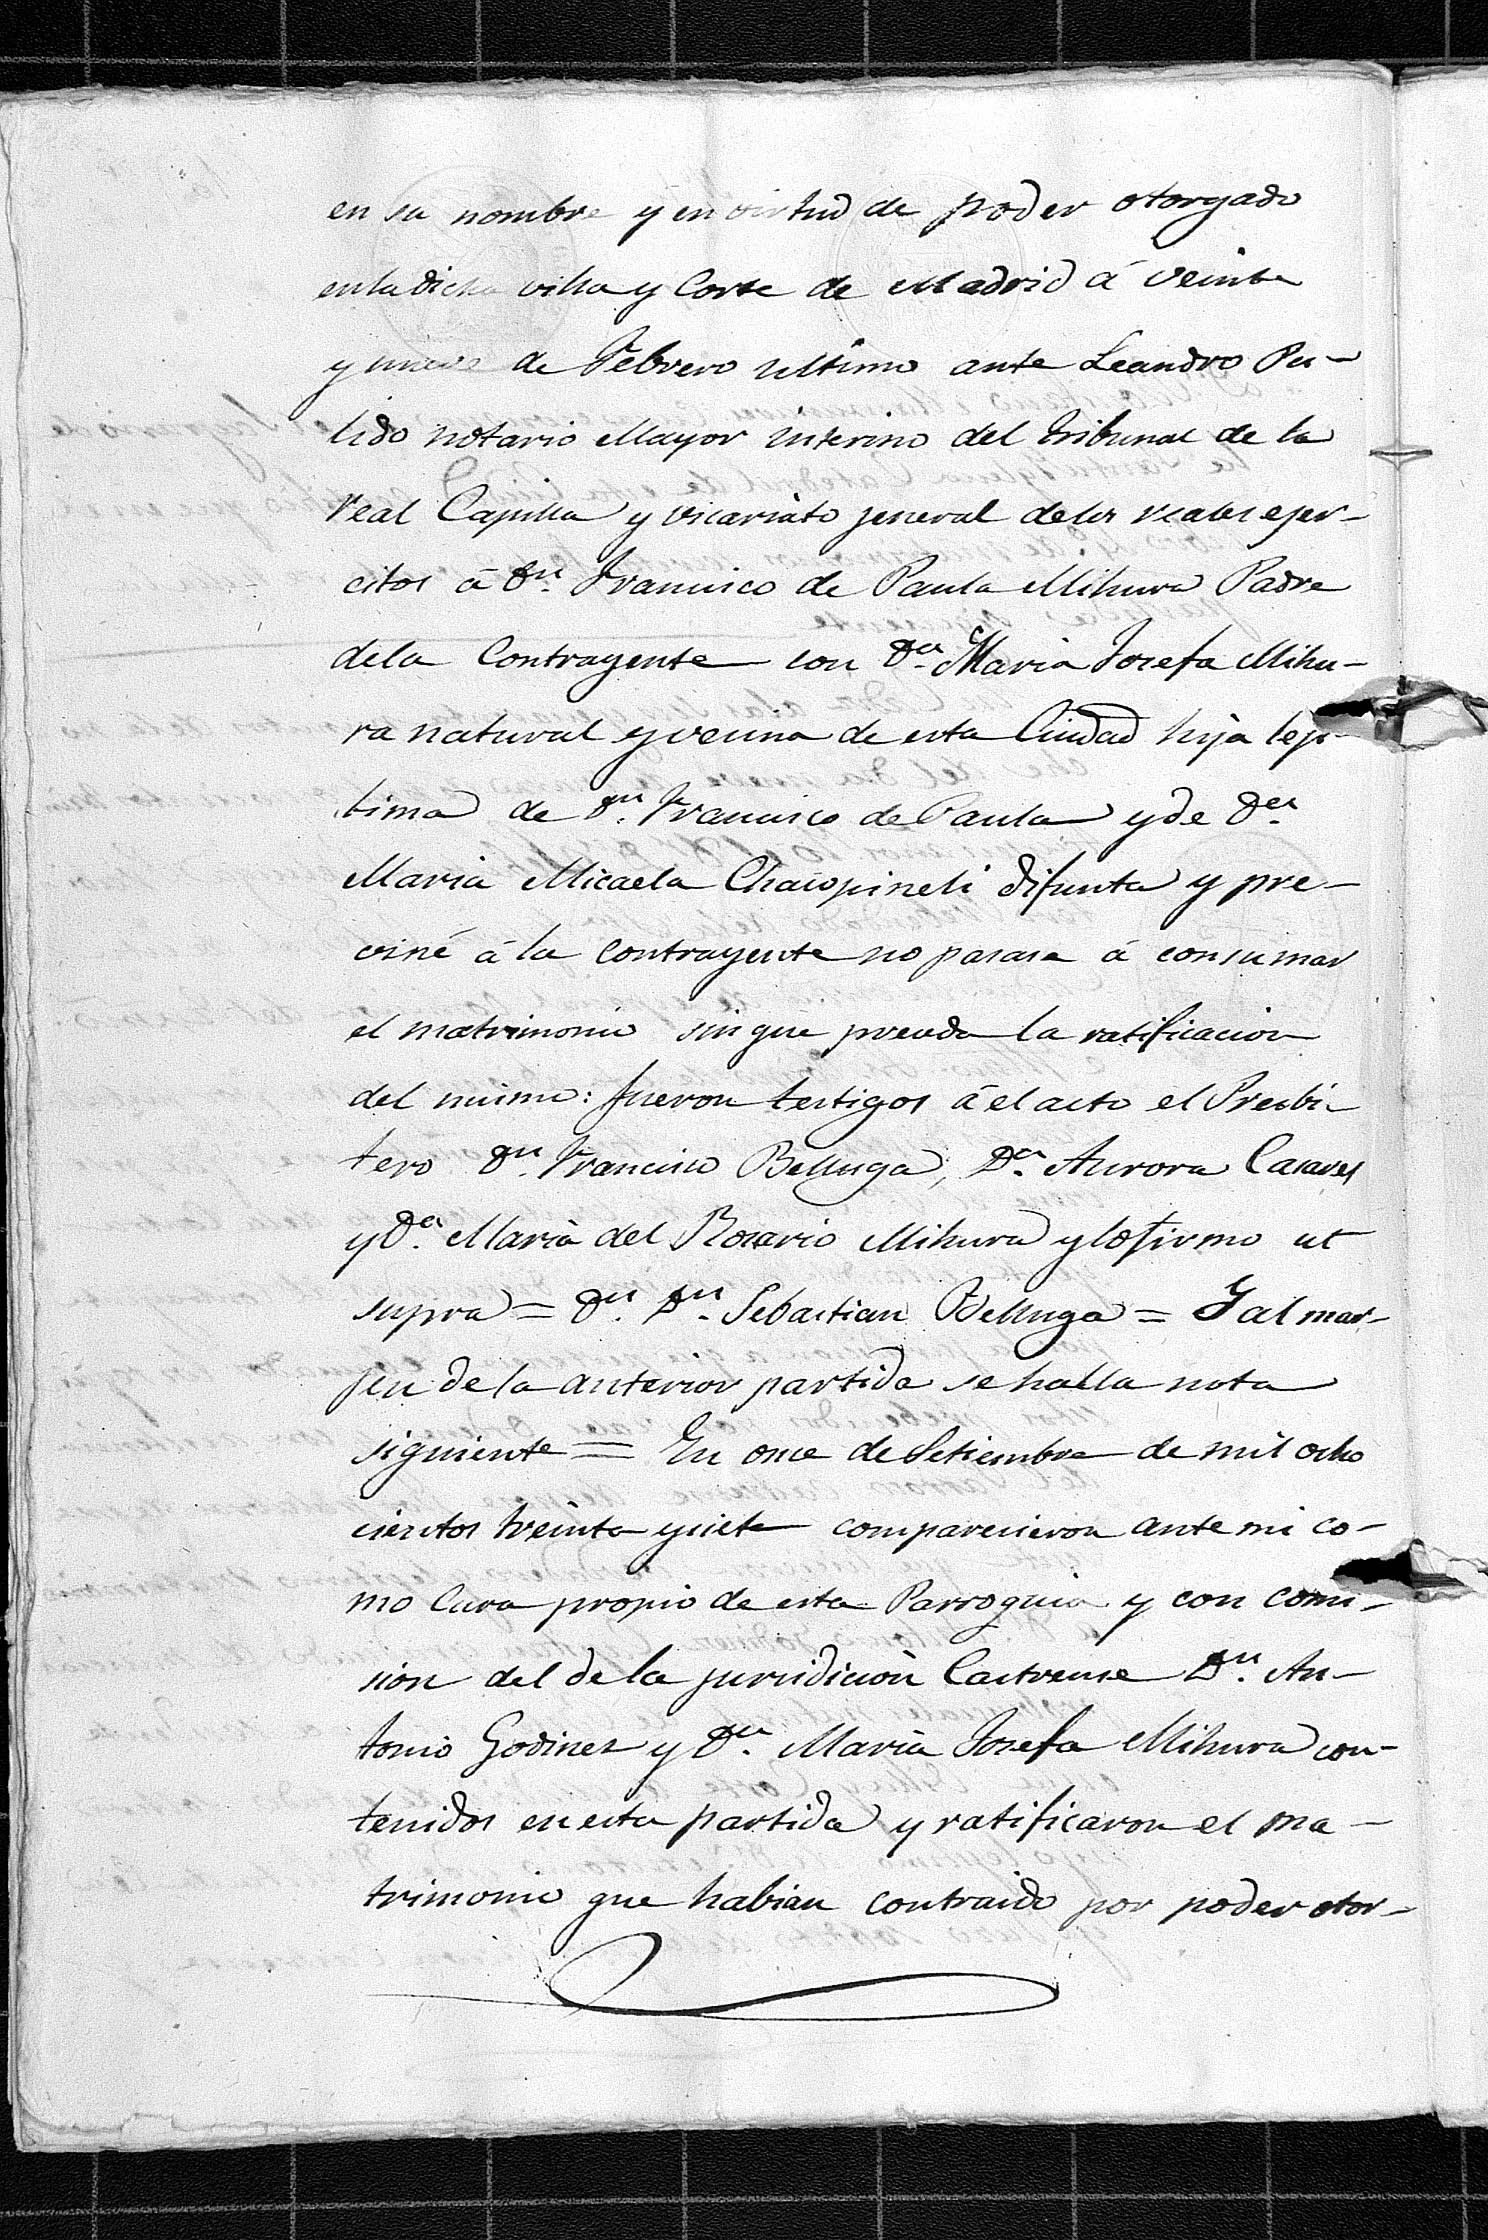 en su nombre y en virtud de poder otorgado
en la dicha villa y Corte de Madrid á veinte
y nueve de Febrero ultimo ante Leandro Pu-
lido notario Mayor interino del tribunal de la
Real Capilla y vicariato jeneral delos reales ejer-
citos á Dn. Francisco de Paula Mihura Padre
dela Contrayente con Da. Maria Josefa Mihu-
ra natural y vecina de esta Ciudad hija leji-
tima de Dn. Francisco de Paula y de Da.
Maria Micaela difunta y pre-
viné á la contrayente no pasase á consumar
el matrimonio sin que preceda la ratificacion
del mismo: fueron testigos á el acto el Presbi-
tero Dn. Francisco Belluga, Da. Aurora Casares
y Da. Maria del Rosario Mihura y lo firmo ut
supra = Dn. Dn. Sebastian Belluga = Y al mar-
jen de la anterior partida se halla nota
siguiente = En once de Setiembre de mil ocho
cientos treinta y siete comparecieron ante mi co-
mo Cura propio de esta Parroquia y con comi-
sion del de la juridicion Castrense Dn. An-
tonio Godinez y Da. Maria Josefa Mihura con-
tenidos en esta partida y ratificaron el ma-
trimonio que habian contraido por poder otor-